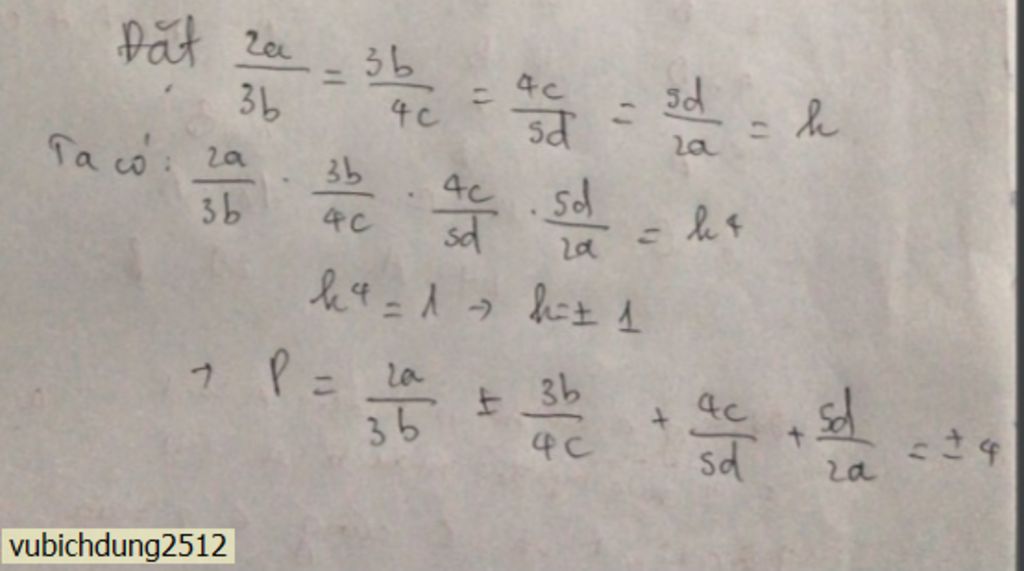 Đặt 2a/3b = 3b/4c = 4c/5d = 5d/2a = k
Ta có: 2a/3b . 3b/4c . 4c/5d . 5d/2a = k⁴
k⁴ = 1 → k = ± 1
→ P = 2a/3b ± 3b/4c + 4c/5d + 5d/2a = ± 4
vubichdung2512